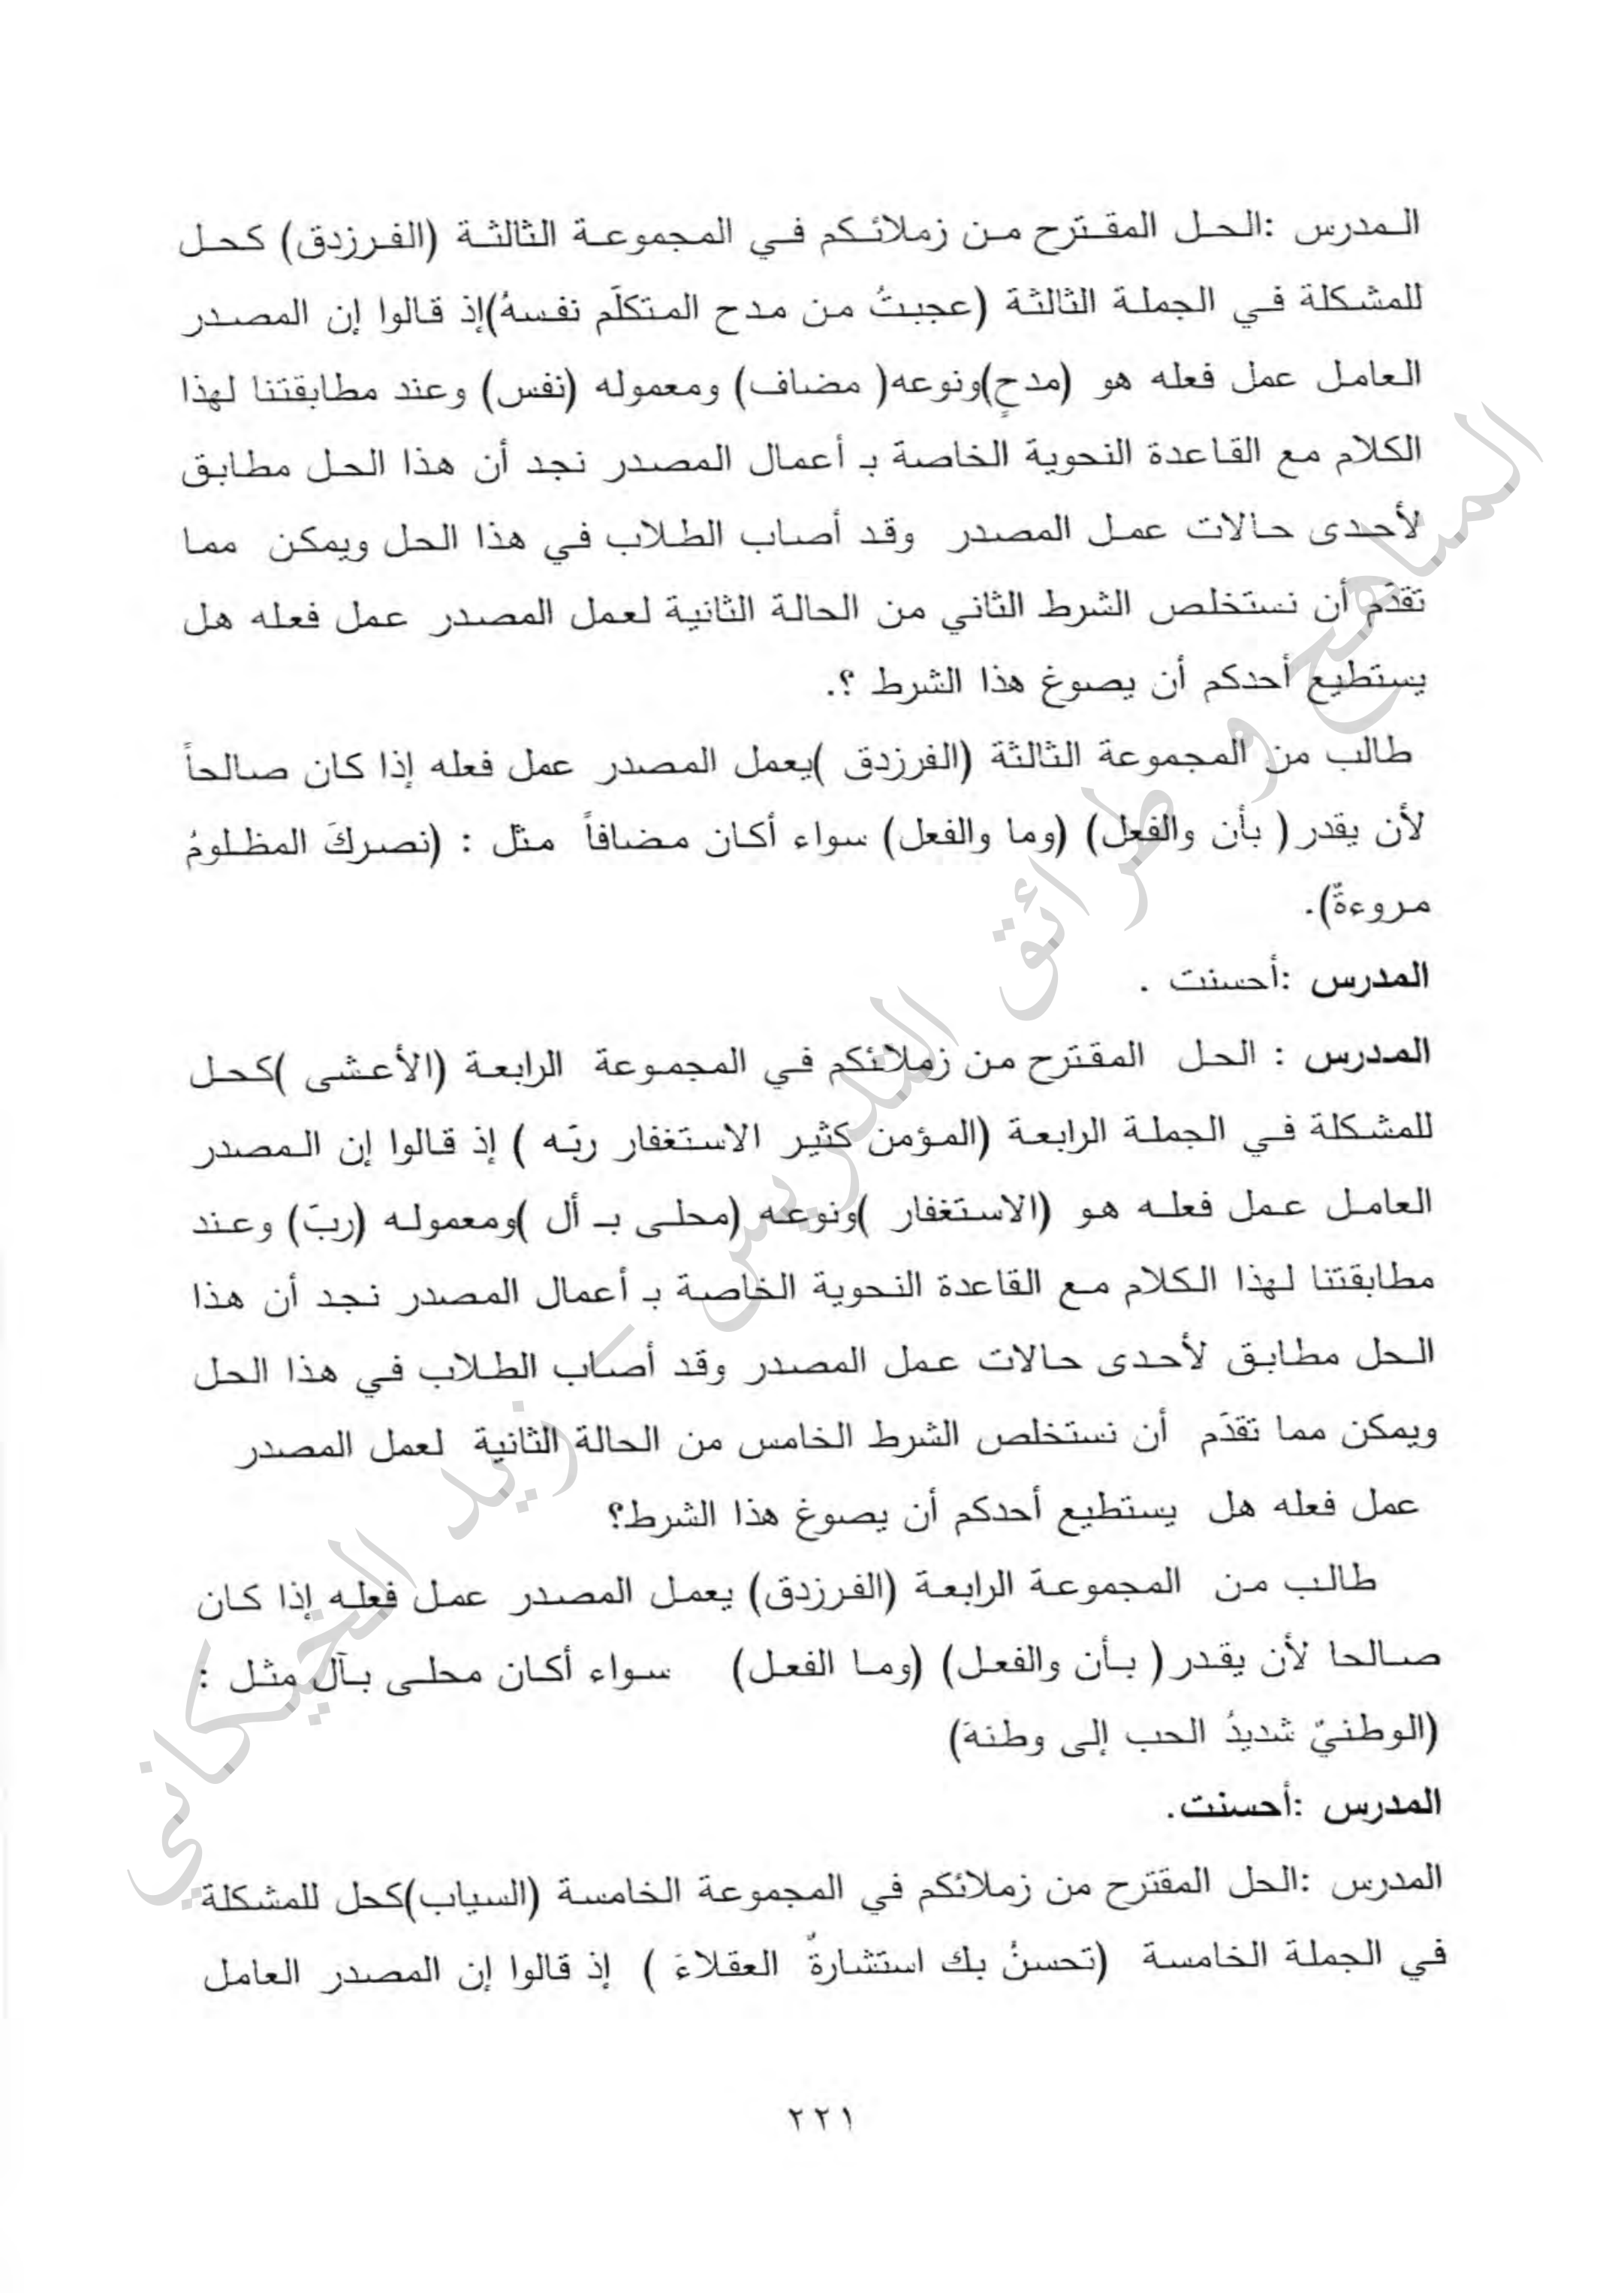 المدرس :الحل المقترح من زملائكم في المجموعة الثالثة (الفرزدق) كحل
للمشكلة في الجملة الثالثة (عجبتُ من مدح المتكلّم نفسهُ)إذ قالوا إن المصدر
العامل عمل فعله هو (مدحٍ)ونوعه( مضاف) ومعموله (نفس) وعند مطابقتنا لهذا
الكلام مع القاعدة النحوية الخاصة بـ أعمال المصدر نجد أن هذا الحل مطابق
لأحدى حالات عمل المصدر وقد أصاب الطلاب في هذا الحل ويمكن مما
تقدّم أن نستخلص الشرط الثاني من الحالة الثانية لعمل المصدر عمل فعله هل
يستطيع أحدكم أن يصوغ هذا الشرط ؟.
طالب من المجموعة الثالثة (الفرزدق )يعمل المصدر عمل فعله إذا كان صالحاً
لأن يقدر( بأن والفعل) (وما والفعل) سواء أكان مضافاً مثل : (نصركَ المظلومُ
مروءةٌ).
المدرس :أحسنت .
المدرس : الحل المقترح من زملائكم في المجموعة الرابعة (الأعشى )كحل
للمشكلة في الجملة الرابعة (المؤمن كثير الاستغفار ربّه ) إذ قالوا إن المصدر
العامل عمل فعله هو (الاستغفار )ونوعه (محلى بـ أل )ومعموله (ربّ) وعند
مطابقتنا لهذا الكلام مع القاعدة النحوية الخاصة بـ أعمال المصدر نجد أن هذا
الحل مطابق لأحدى حالات عمل المصدر وقد أصاب الطلاب في هذا الحل
ويمكن مما تقدّم أن نستخلص الشرط الخامس من الحالة الثانية لعمل المصدر
عمل فعله هل يستطيع أحدكم أن يصوغ هذا الشرط؟
طالب من المجموعة الرابعة (الفرزدق) يعمل المصدر عمل فعله إذا كان
صالحا لأن يقدر( بأن والفعل) (وما الفعل) سواء أكان محلى بآل مثل :
(الوطنيّ شديدُ الحب إلى وطنة)
المدرس :أحسنت.
المدرس :الحل المقترح من زملائكم في المجموعة الخامسة (السياب)كحل للمشكلة
في الجملة الخامسة (تحسنُ بك استشارةٌ العقلاءَ ) إذ قالوا إن المصدر العامل
٢٢١
المناهج و طرائق التدريس – زيد الخيكاني